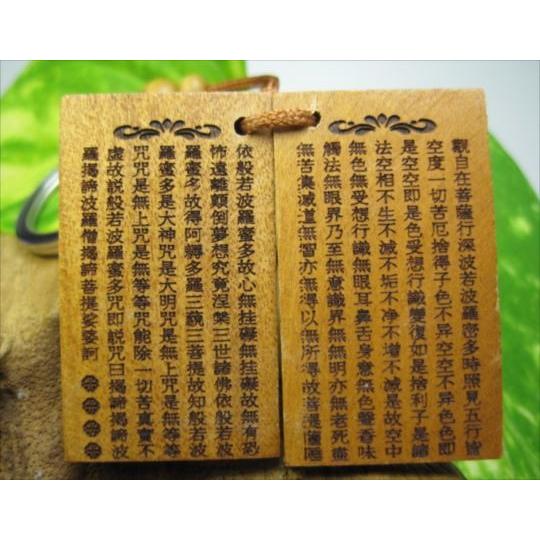 觀自在菩薩行深波若波羅密多時照見五行皆
空度一切苦厄捨得子色不异空空不异色色即
是空空即是色受想行識變復如是捨利子是諸
法空相不生不滅不垢不净不增不滅是故空中
無色無受想行識無眼耳鼻舌身意無色聲香味
觸法無眼界乃至無意識界無無明亦無老死盡
無苦集滅道無習亦無得以無所得故菩是薩
依般若波羅蜜多故心無挂礙無挂礙故無有恐
怖遠離顛倒夢想究竟涅槃三世諸佛依般若波
羅蜜多故得阿耨多羅三藐三菩提故知般若波
羅蜜多是大神咒是大明咒是無上咒是無等等
咒咒是無上咒是無等等咒能除一切苦真實不
虛故説般若波羅蜜多咒即説咒曰揭諦揭諦波
羅揭諦波羅僧揭諦菩提娑婆訶